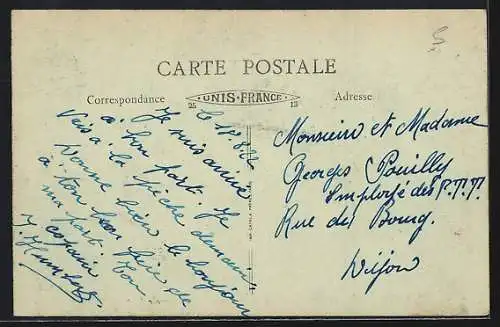 5
CARTE POSTALE
Correspondance
25 UNIS-FRANCE 13
Adresse
Le 18.8.22
Je suis arrivé
à bon port. Je
vais à la pêche demain.
Donne bien le bonjour
à ton bon père de
ma part. Ton
copain
Monsieur et Madame
Georges Pouilly
Employé des P.T.T.
Rue du Bourg.
Dijon